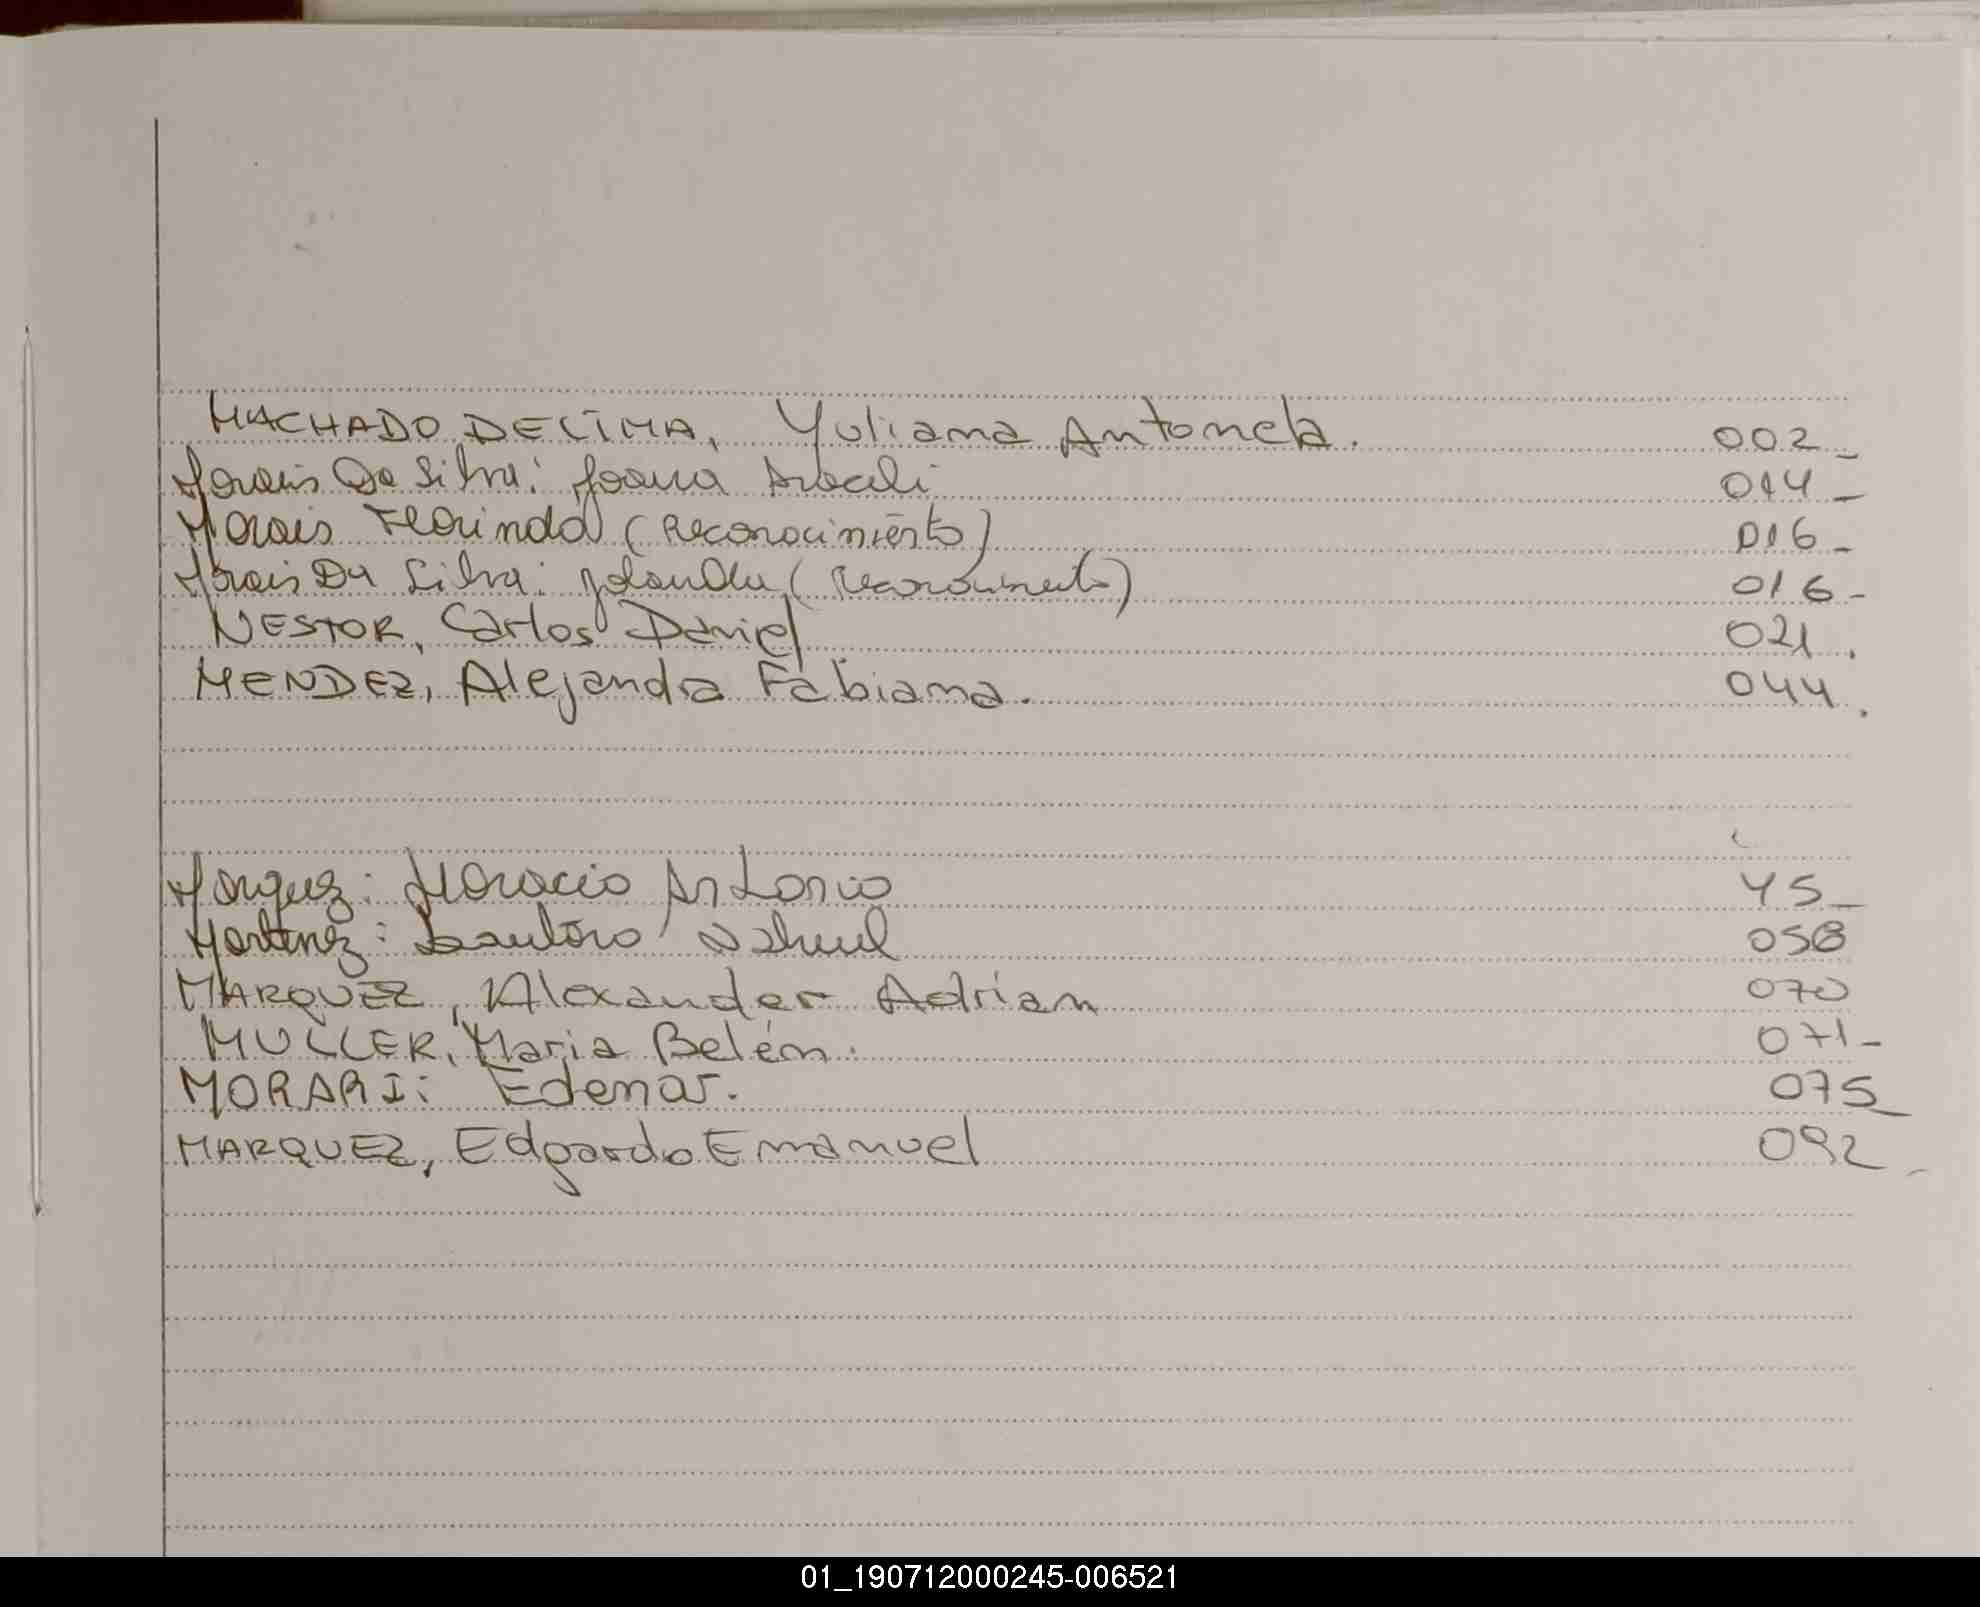 MACHADO DECIMA, Yuliana Antonela. 002_
Morais Da Silva: Joana Araceli 014_
Morais Florinda (Reconocimiento) 016_
Morais Da Silva: Jolanda (Reconocimiento) 016-
NESTOR, Carlos Daniel 021.
MENDEZ, Alejandra Fabiana. 044.
Marquez: Horacio Antonio 45_
Martinez: Lautaro Nahuel 058
MARQUEZ, Alexander Adrian 070
MULLER, Maria Belém. 071-
MORARI: Edenar. 075_
MARQUEZ, Edgardo Emanuel 092-
01_190712000245-006521